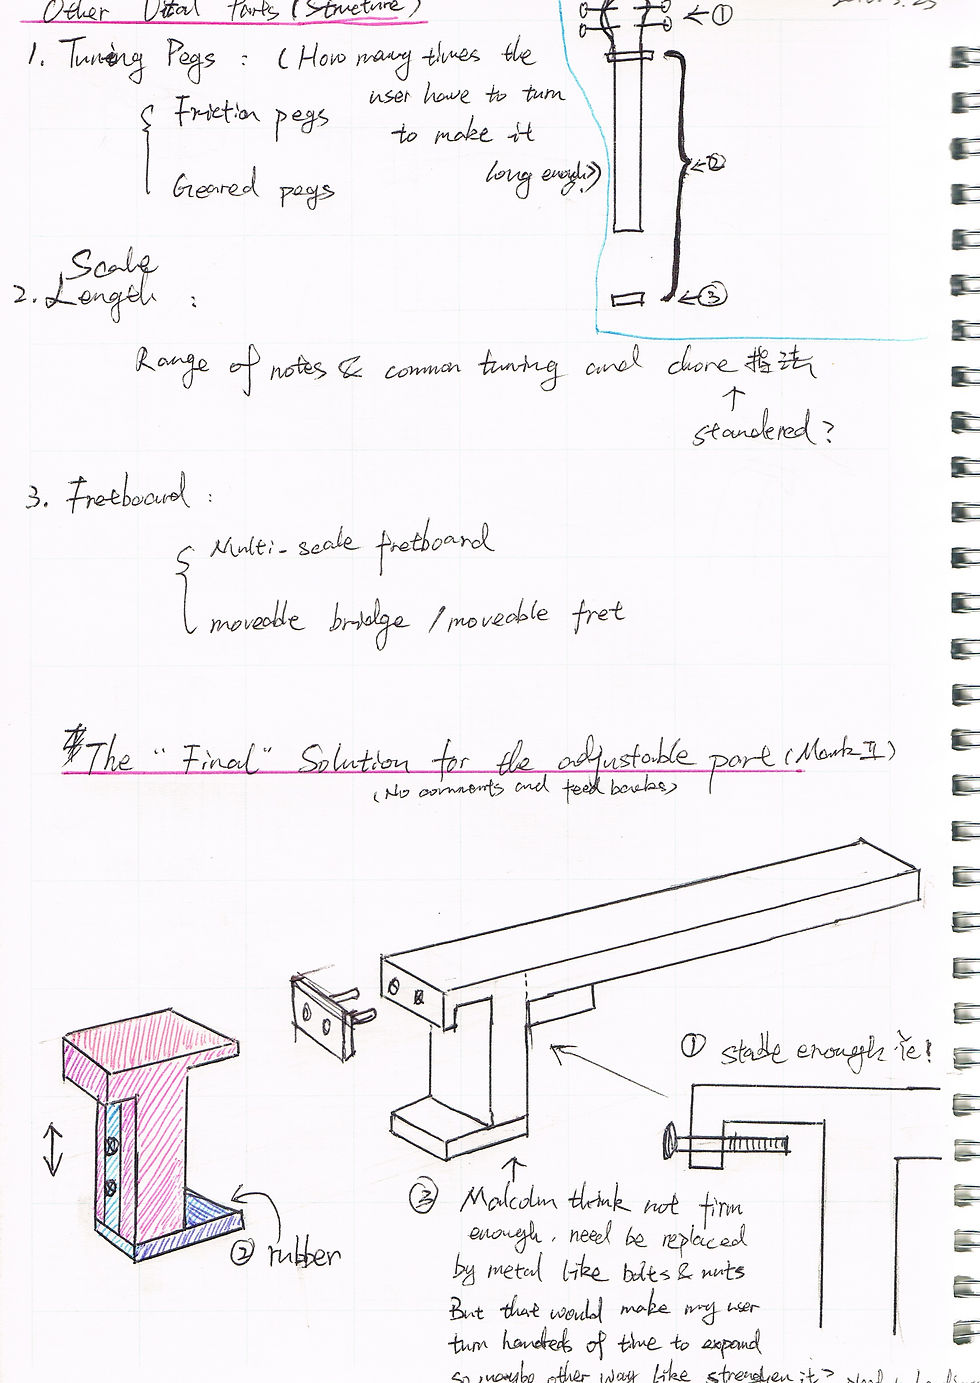 Other Vital Parts (Structure)
1. Tuning Pegs : (How many times the
user have to turn
to make it
long enough?)
Friction pegs
Geared pegs
①
②
③
2. Scale
Length :
Range of notes & common tuning and chore 指法
↑
standered?
3. Fretboard :
Multi-scale fretboard
moveable bridge / moveable fret
The "Final" Solution for the adjustable part (Mark II)
(No comments and feed backs)
① stable enough
② rubber
③ Malcolm think not firm
enough. need be replaced
by metal like bolts & nuts
But that would make my user
turn hundreds of time to expand
so maybe other way like strengthen it?